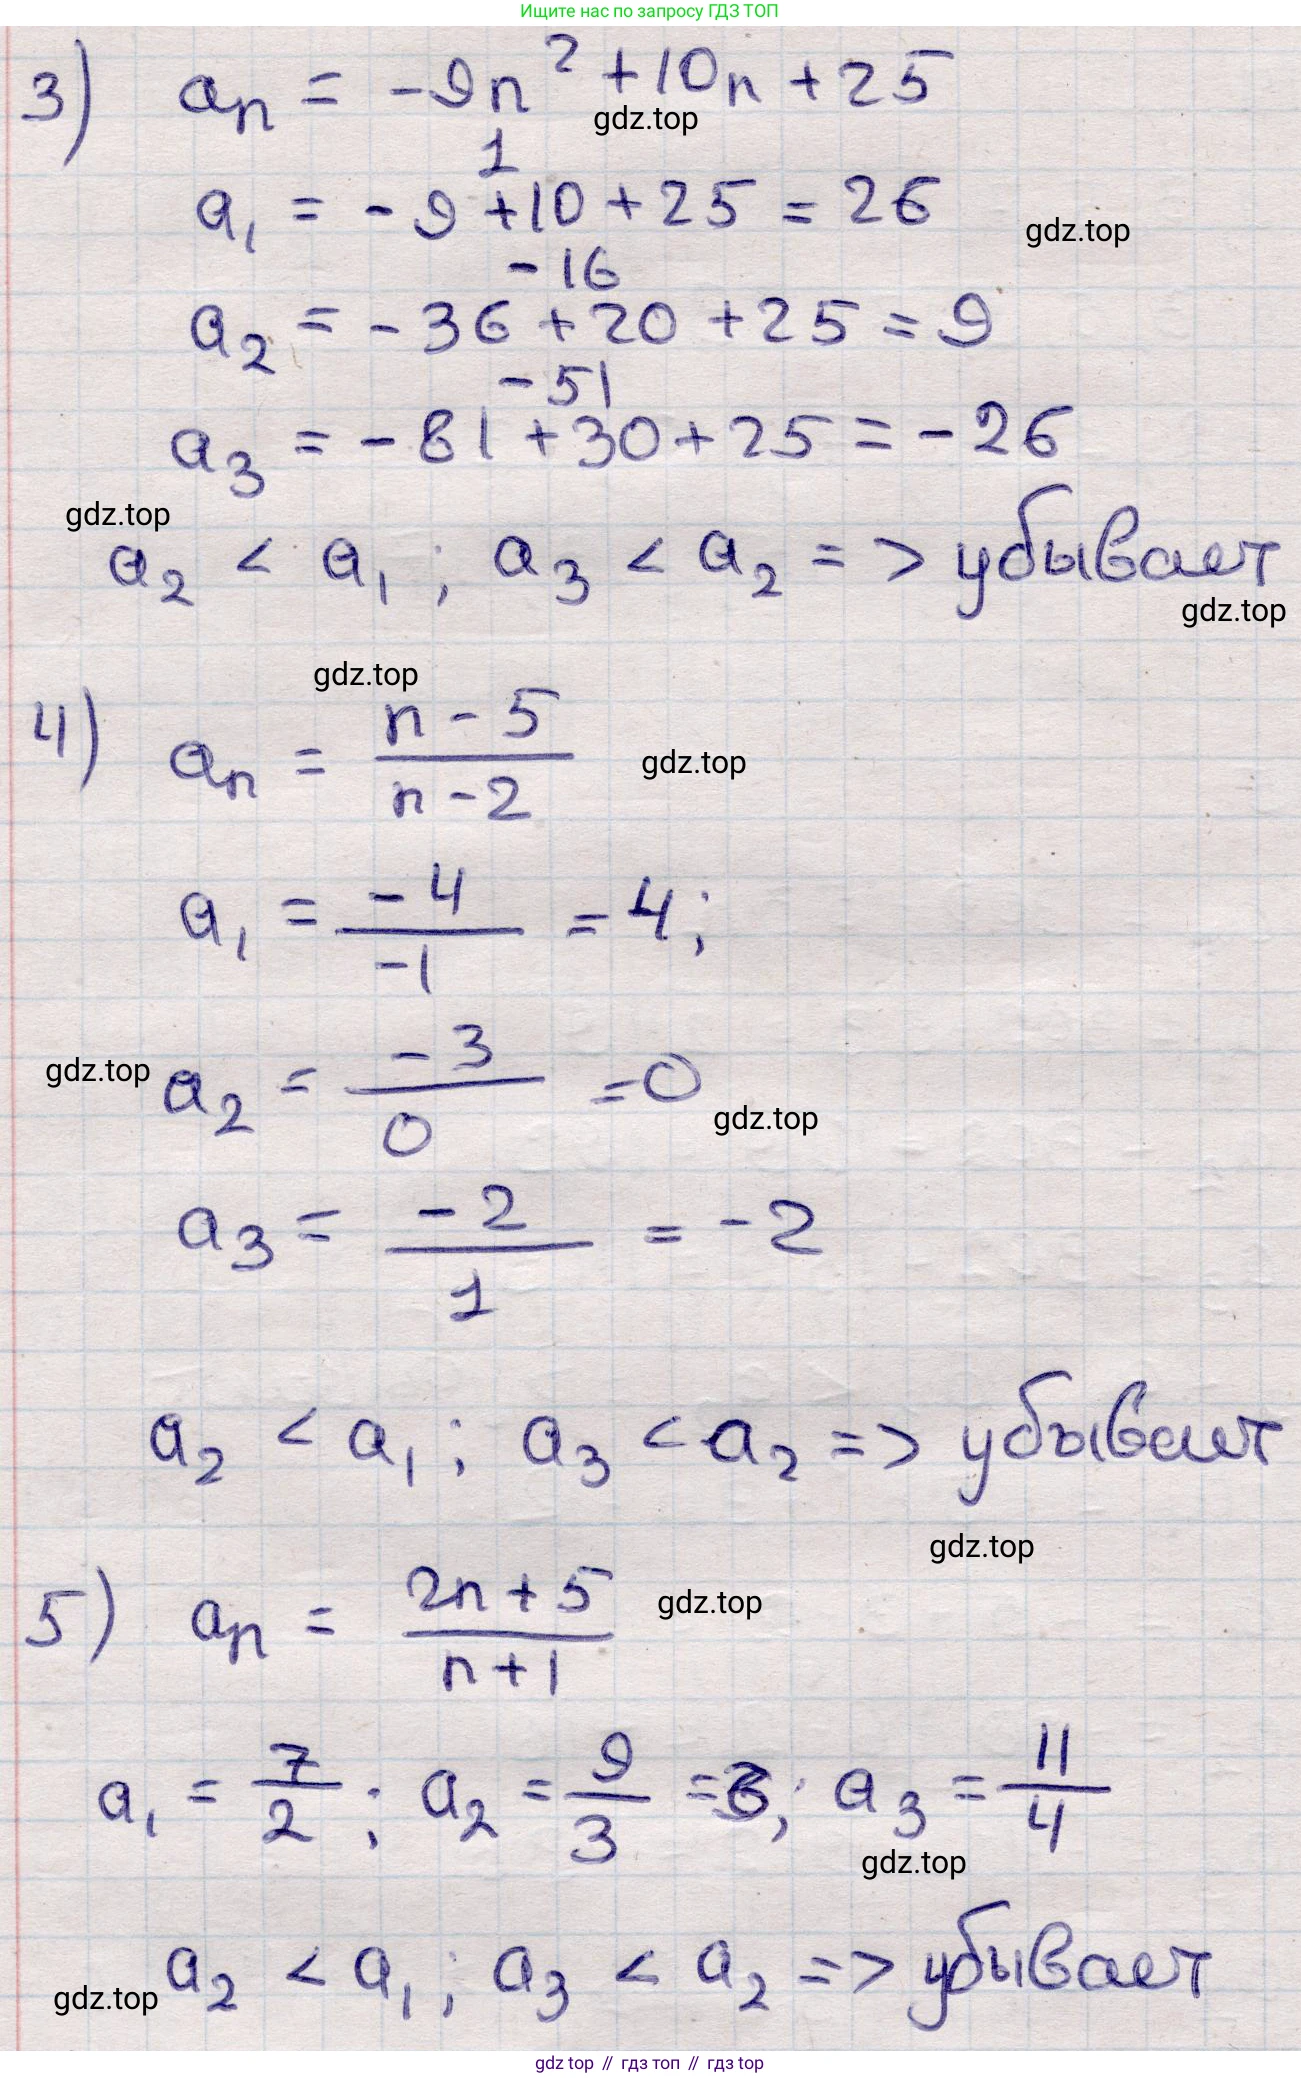 Ищите нас по запросу ГДЗ ТОП
3) aₙ = -9n² + 10n + 25
gdz.top
1
a₁ = -9 + 10 + 25 = 26
gdz.top
-16
a₂ = -36 + 20 + 25 = 9
-51
a₃ = -81 + 30 + 25 = -26
gdz.top
a₂ < a₁ ; a₃ < a₂ => убывает
gdz.top
gdz.top
4) aₙ = (n - 5)/(n - 2)
gdz.top
a₁ = -4/-1 = 4;
gdz.top
a₂ = -3/0 = 0
gdz.top
a₃ = -2/1 = -2
a₂ < a₁ ; a₃ < a₂ => убывает
gdz.top
5) aₙ = (2n + 5)/(n + 1)
gdz.top
a₁ = 7/2 ; a₂ = 9/3 = 3; a₃ = 11/4
gdz.top
a₂ < a₁ ; a₃ < a₂ => убывает
gdz.top
gdz top // гдз топ // гдз top